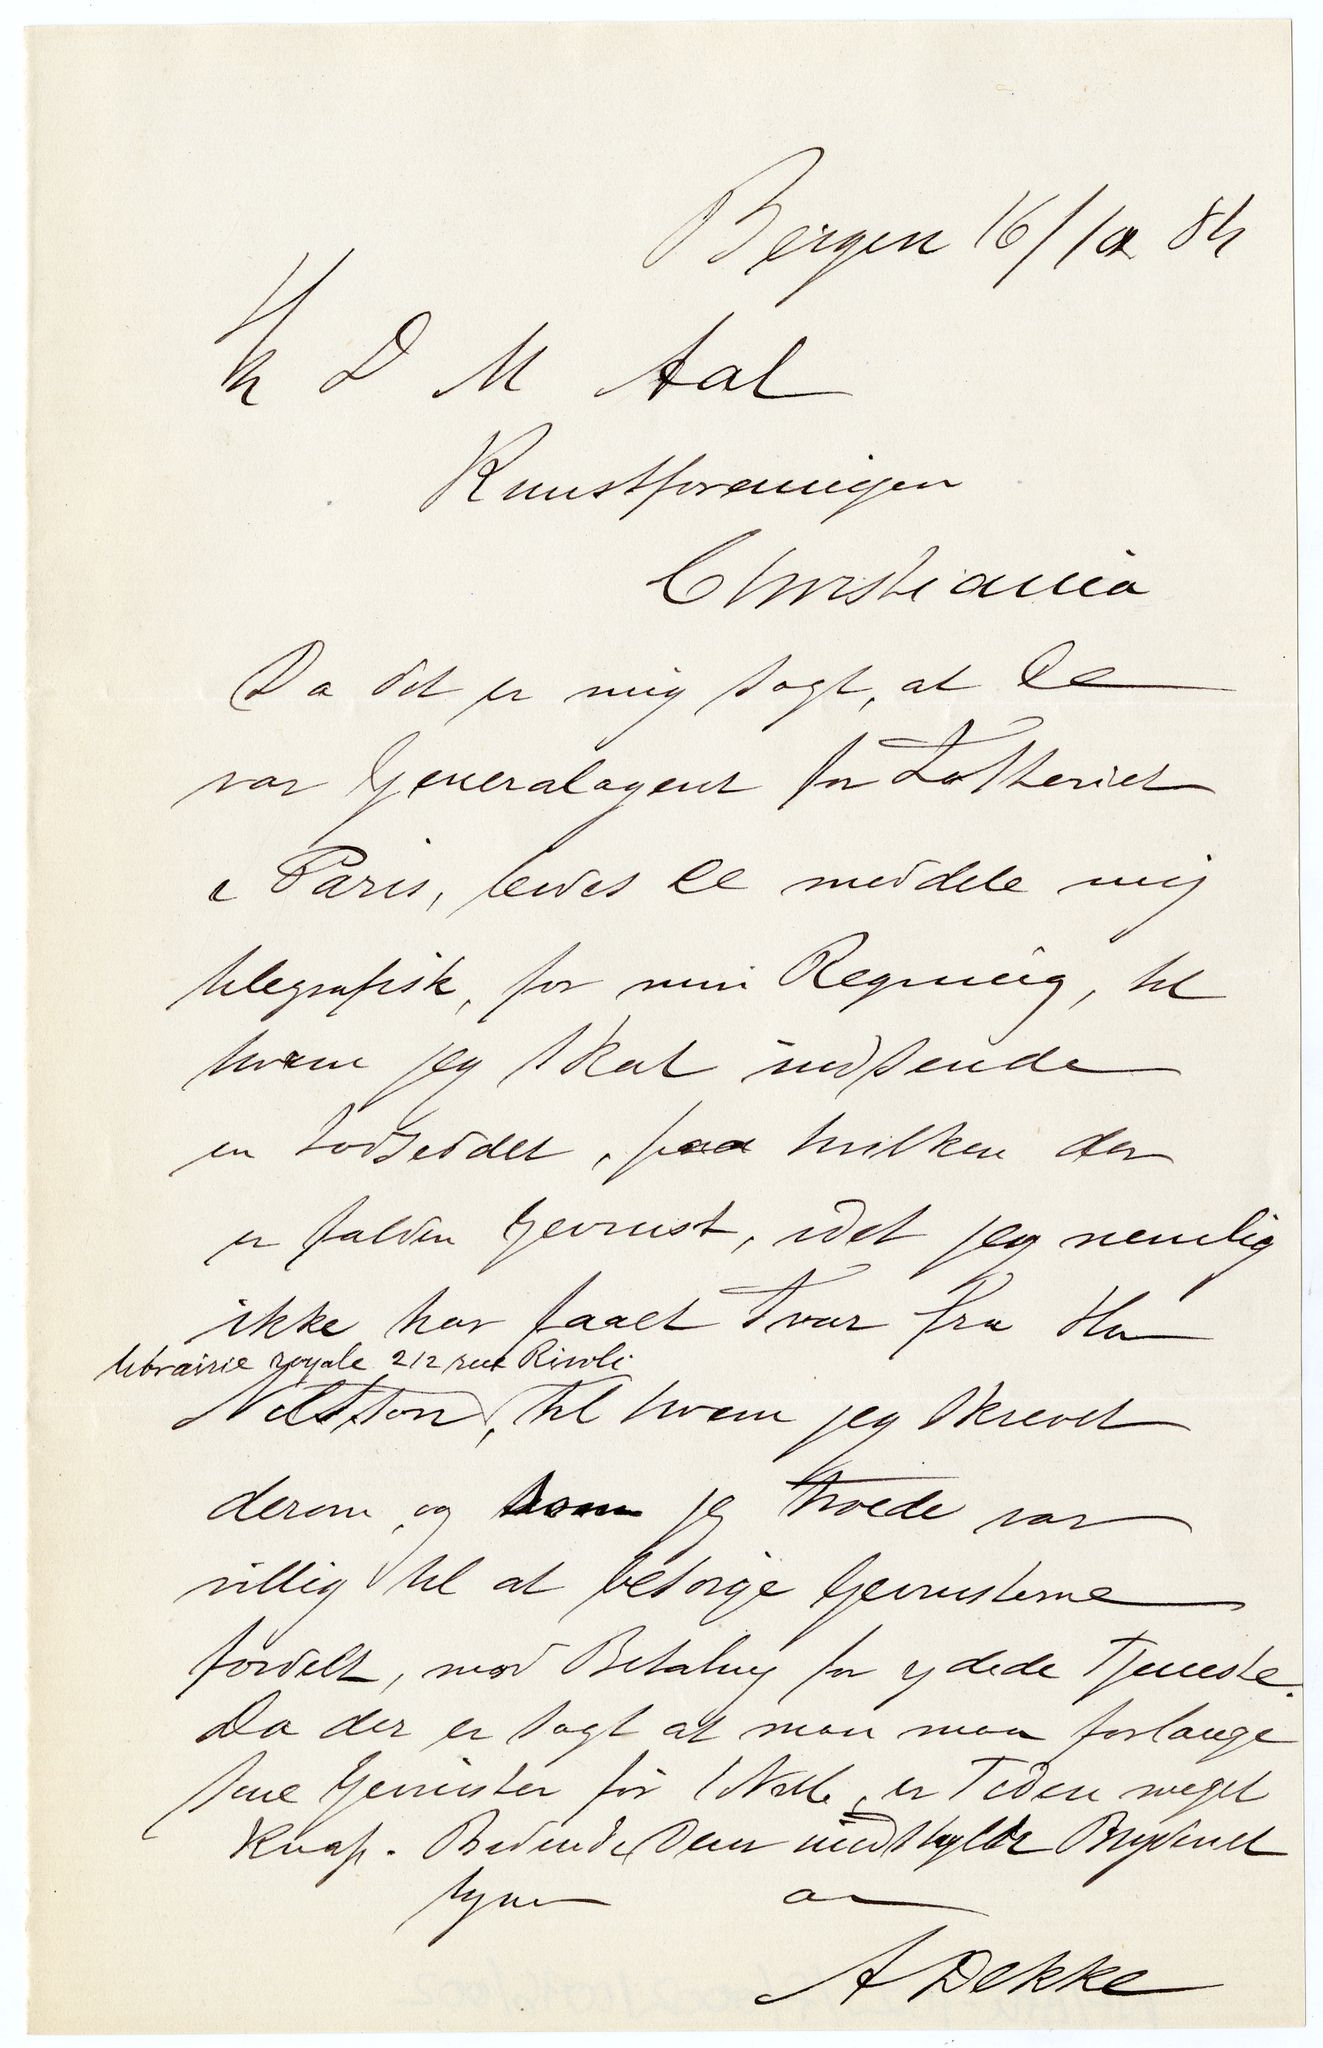 Bergen 16/10 84
Hr D M Aal
Kunstforeningen
Christiania
Da det er mig sagt, at De
var Generalagent for Lotteriet
i Paris, bedes De meddele mig
telegrafisk, for min Regning, til
hvem jeg skal indsende
en Lodseddel, paa hvilken der
er falden Gevinst, idet jeg nemlig
ikke har faaet Svar fra Hr
librairie royale 212 rue Rivoli
Nilsson, til hvem jeg skrevet
derom, og som jeg troede var
villig til at besørge Gevinsterne
fordelt, mod Betaling for ydede Tjeneste.
Da der er sagt at man maa forlange
sine Gevinster før 1 Novbr, er Tiden meget
Knap. Bedende Dem undskylde Bryderiet
tegner
A Dekke